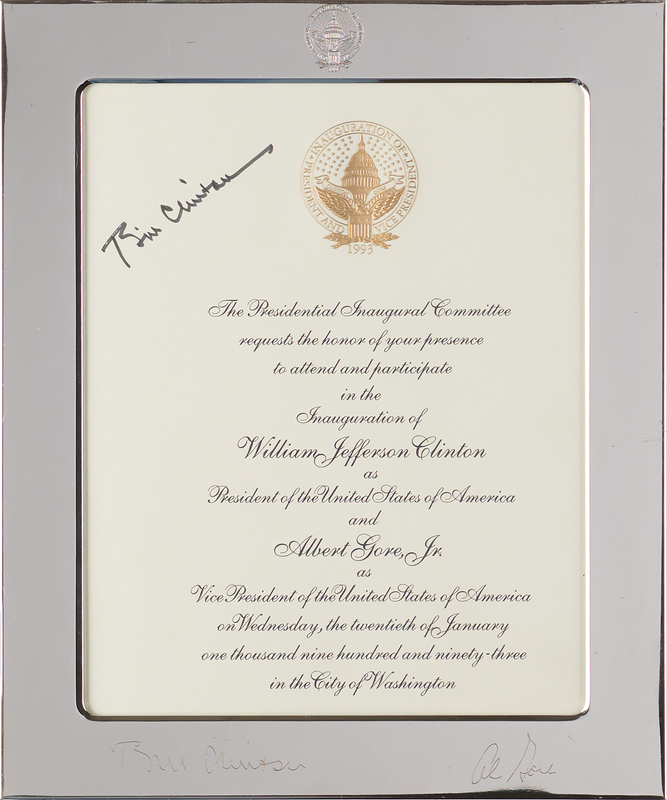 INAUGURATION OF
PRESIDENT AND VICE PRESIDENT
1993
Bill Clinton
The Presidential Inaugural Committee
requests the honor of your presence
to attend and participate
in the
Inauguration of
William Jefferson Clinton
as
President of the United States of America
and
Albert Gore, Jr.
as
Vice President of the United States of America
on Wednesday, the twentieth of January
one thousand nine hundred and ninety-three
in the City of Washington
Bill Clinton
Al Gore